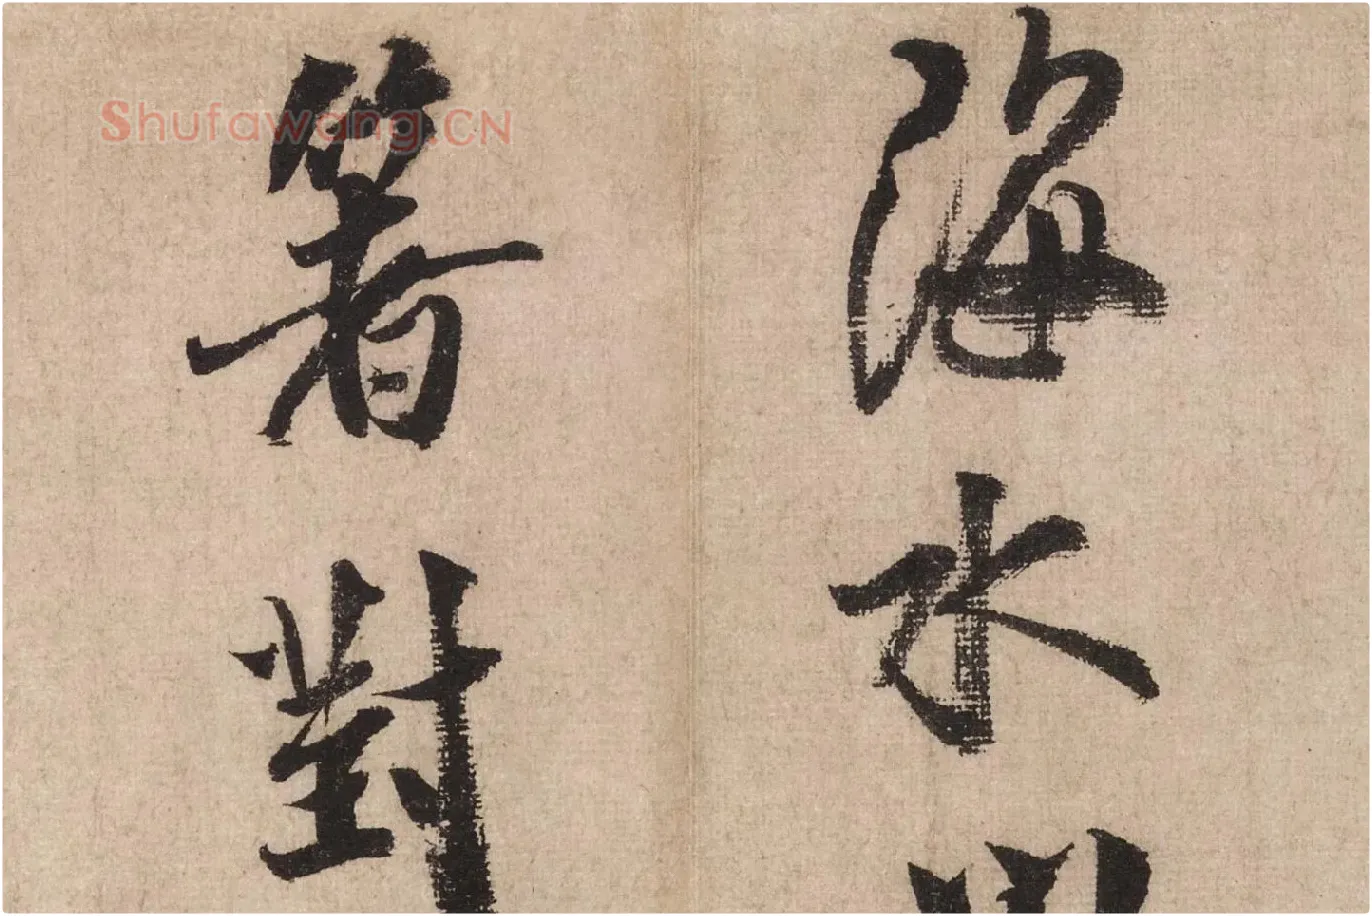 海水
箸對
Shufawang.CN